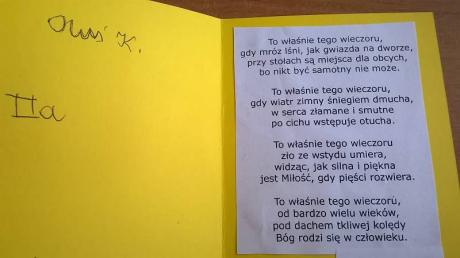 Oluś K.
IIa
To właśnie tego wieczoru,
gdy mróz lśni, jak gwiazda na dworze,
przy stołach są miejsca dla obcych,
bo nikt być samotny nie może.
To właśnie tego wieczoru,
gdy wiatr zimny śniegiem dmucha,
w serca złamane i smutne
po cichu wstępuje otucha.
To właśnie tego wieczoru
zło ze wstydu umiera,
widząc, jak silna i piękna
jest Miłość, gdy pięści rozwiera.
To właśnie tego wieczoru,
od bardzo wielu wieków,
pod dachem tkliwej kolędy
Bóg rodzi się w człowieku.